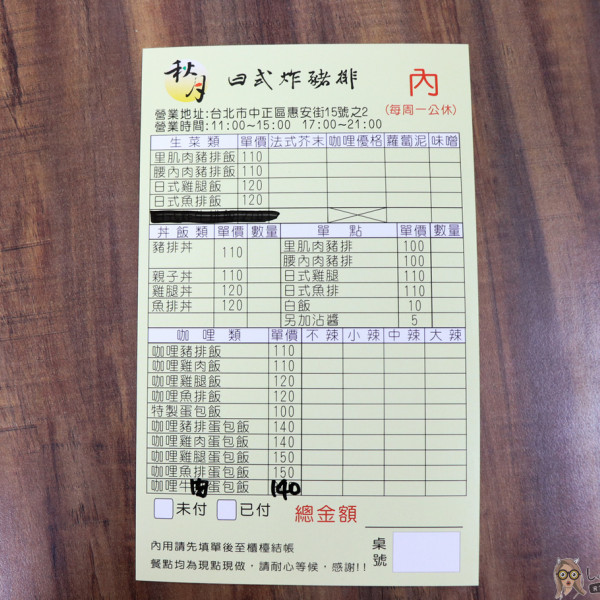 秋月 日式炸豬排 內
營業地址:台北市中正區惠安街15號之2 (每周一公休)
營業時間:11:00~15:00 17:00~21:00
生菜類 單價 法式芥末 咖哩優格 蘿蔔泥 味噌
里肌肉豬排飯 110
腰內肉豬排飯 110
日式雞腿飯 120
日式魚排飯 120
丼飯類 單價 數量 單點 單價 數量
豬排丼 110 里肌肉豬排 100
腰內肉豬排 100
親子丼 110 日式雞腿 110
雞腿丼 120 日式魚排 110
魚排丼 120 白飯 10
另加沾醬 5
咖哩類 單價 不辣 小辣 中辣 大辣
咖哩豬排飯 110
咖哩雞肉飯 110
咖哩雞腿飯 120
咖哩魚排飯 120
特製蛋包飯 100
咖哩豬排蛋包飯 140
咖哩雞肉蛋包飯 140
咖哩雞腿蛋包飯 150
咖哩魚排蛋包飯 150
咖哩牛肉蛋包飯 140
未付 已付 總金額
內用請先填單後至櫃檯結帳 桌號
餐點均為現點現做,請耐心等候,感謝!!